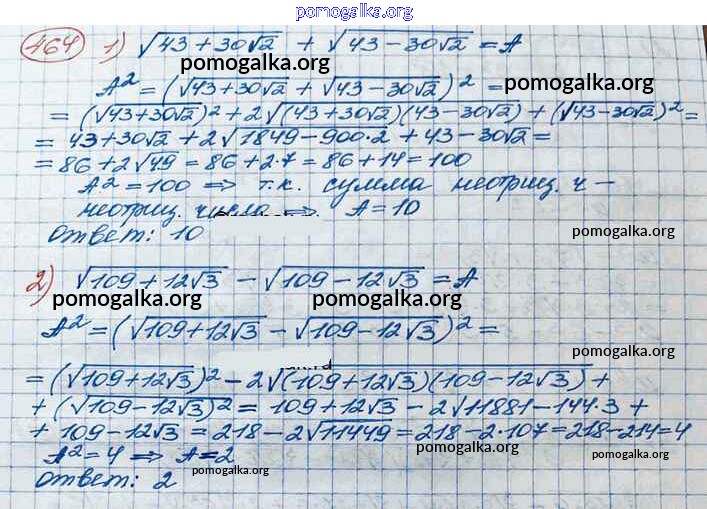 pomogalka.org
464 1) √43+30√2 + √43-30√2 = A
pomogalka.org
A² = (√43+30√2 + √43-30√2)² = pomogalka.org
= (√43+30√2)² + 2√(43+30√2)(43-30√2) + (√43-30√2)² =
= 43+30√2 + 2√1849-900·2 + 43-30√2 =
= 86+2√49 = 86+2·7 = 86+14 = 100
A² = 100 ⇒ т.к. сумма неотриц. ч-
неотриц. число ⇒ A = 10
Ответ: 10 pomogalka.org
2) √109+12√3 - √109-12√3 = A
pomogalka.org pomogalka.org
A² = (√109+12√3 - √109-12√3)² =
pomogalka.org
= (√109+12√3)² - 2√(109+12√3)(109-12√3) +
+ (√109-12√3)² = 109+12√3 - 2√11881-144·3 +
+ 109-12√3 = 218-2√11449 = 218-2·107 = 218-214 = 4
pomogalka.org pomogalka.org
A² = 4 ⇒ A = 2 pomogalka.org
Ответ: 2